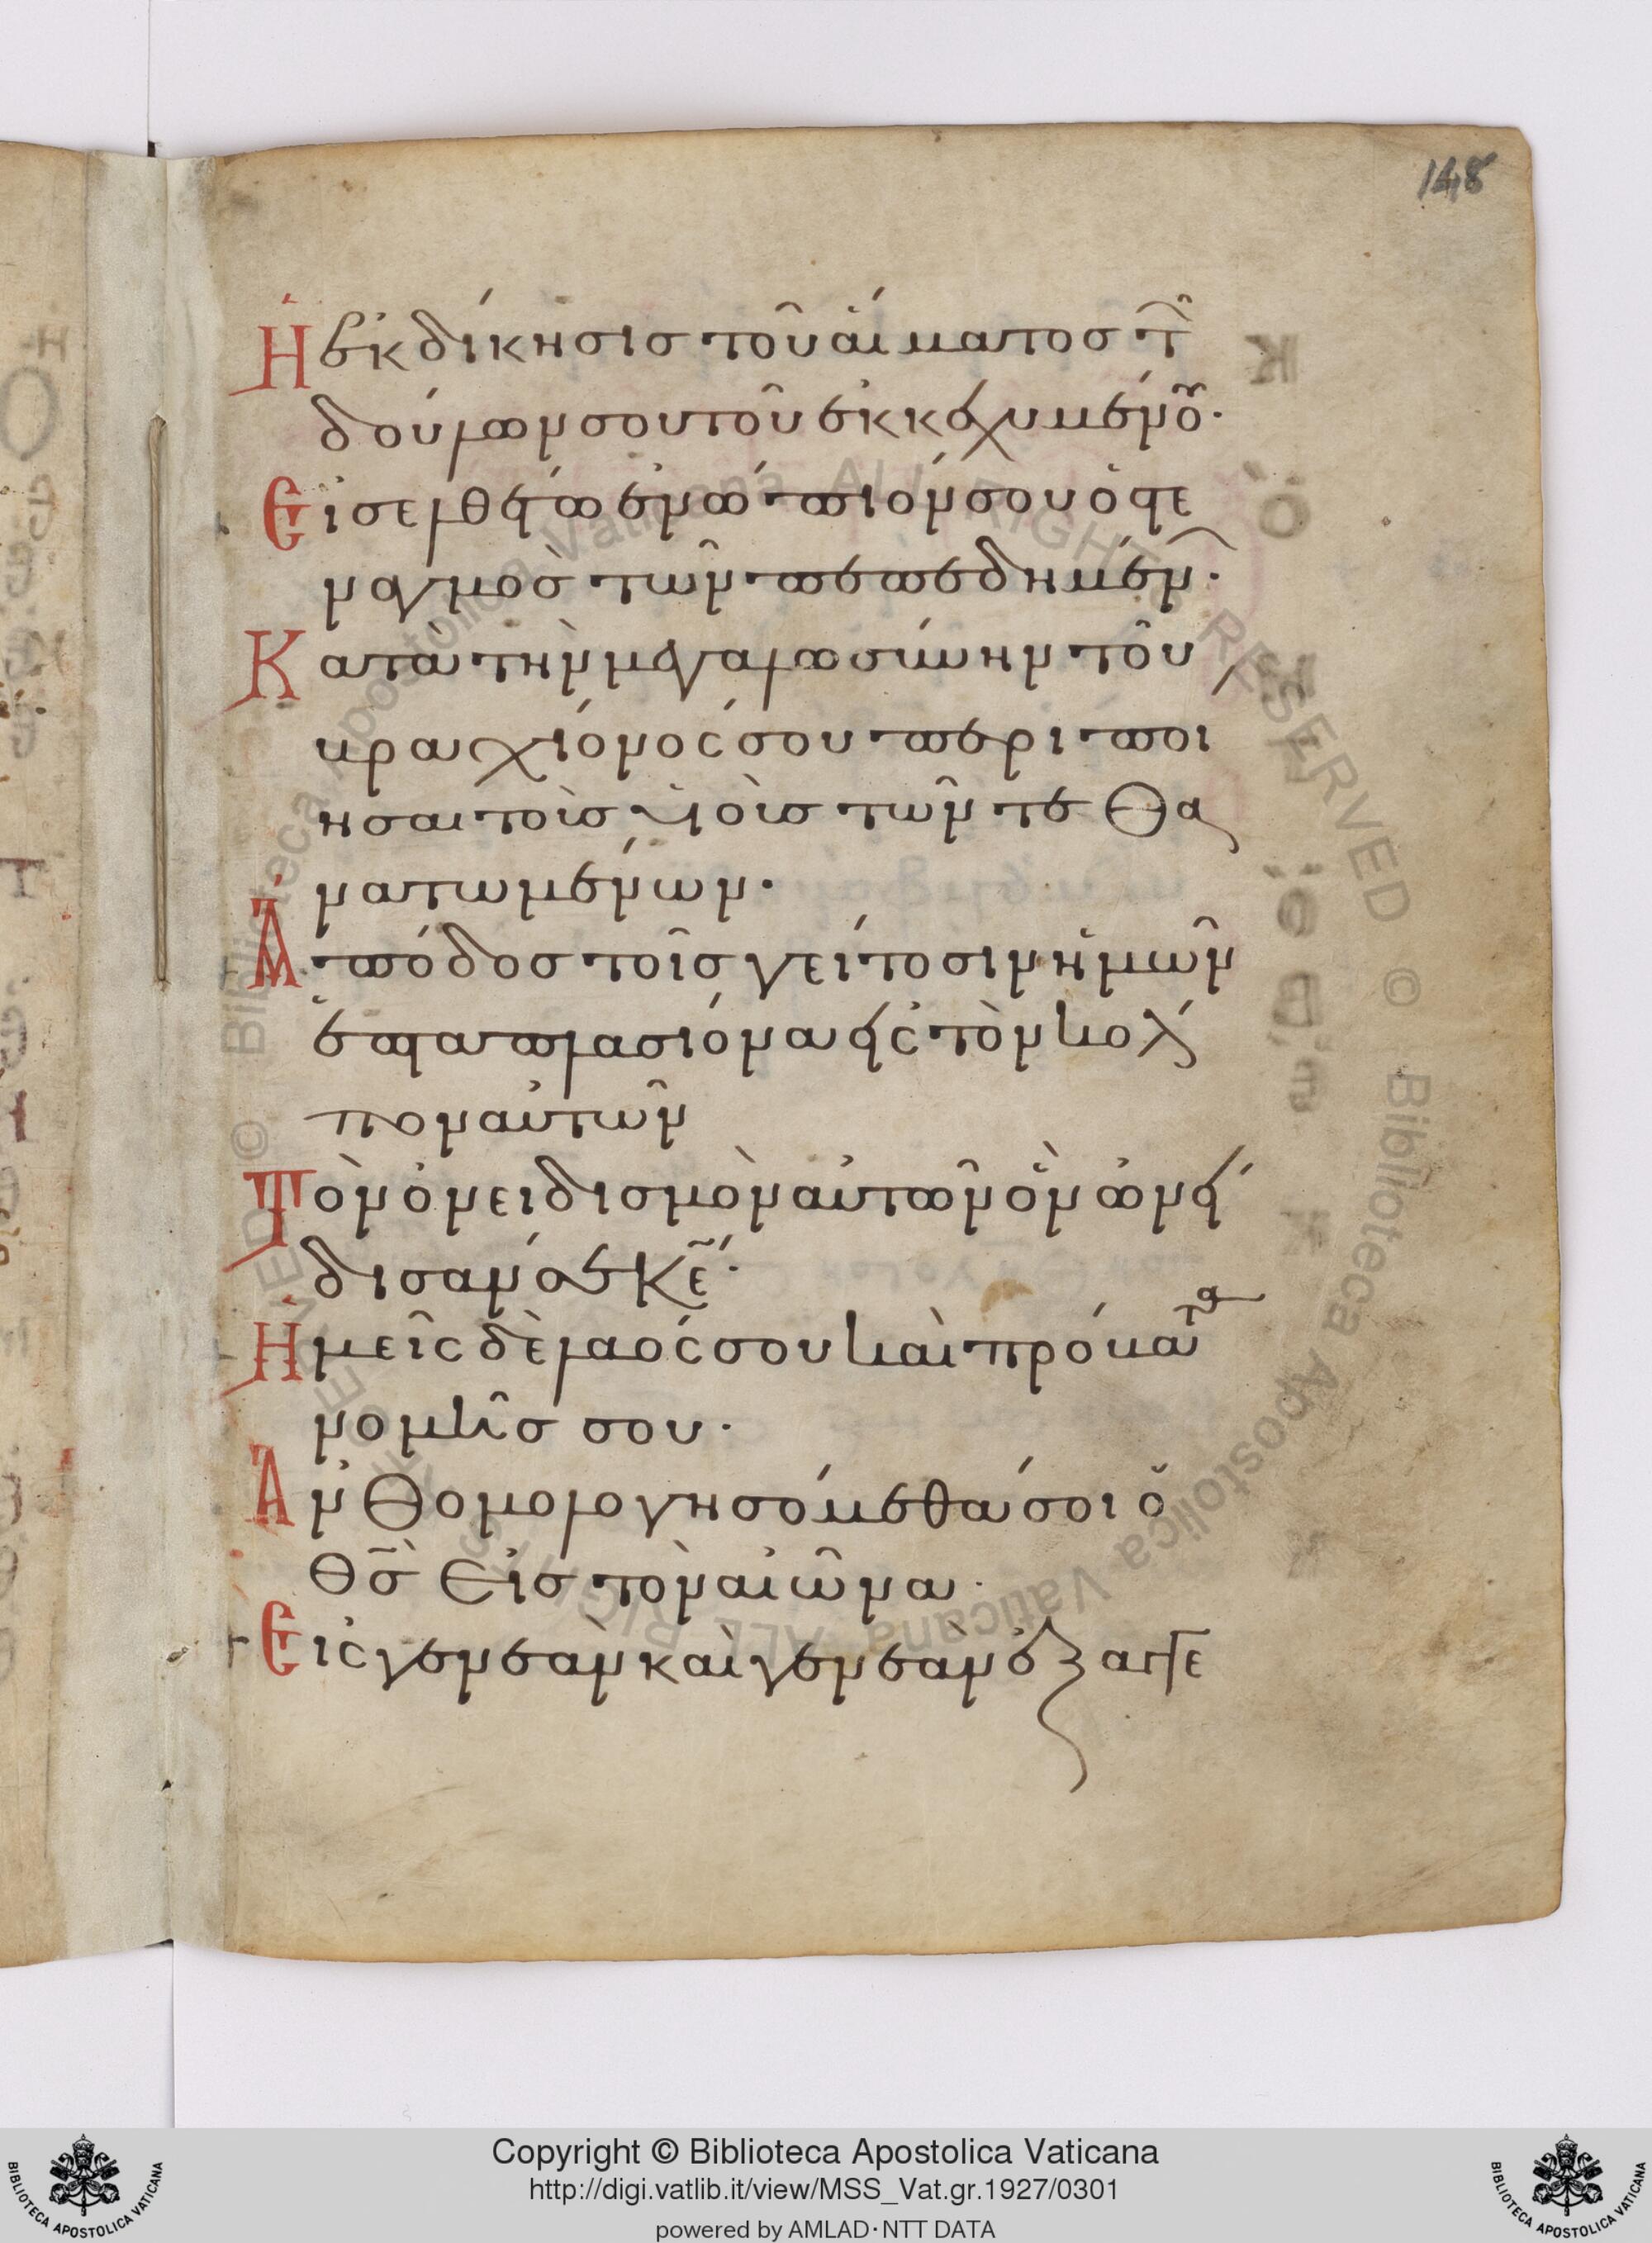 148
Ἡ ἐκδίκησις τοῦ αἵματος τῶ̑
δούλων σου τοῦ ἐκκεχυμένου·
Εἰσελθέτω ἐνώπιόν σου ὁ στε
ναγμὸς τῶν πεπεδημένων·
Κατὰ τὴν μεγαλωσύνην τοῦ
βραχίονός σου περιποί
ησαι τοὺς υἱοὺς τῶν τεθα
νατωμένων·
Ἀπόδος τοῖς γείτοσιν ἡμῶν
ἑπταπλασίονα εἰς τὸν κόλ
πον αὐτῶν
Τὸν ὀνειδισμὸν αὐτῶν ὃν ὠνεί
δισάν σε κ̅ε̅·
Ἡμεῖς δὲ λαός σου καὶ πρόβατα
νομῆς σου·
Ἀνθομολογησόμεθά σοι ὁ
θ̅ς̅ εἰς τὸν αἰῶνα·
Εἰς γενεὰν καὶ γενεὰν ἐξαγγε
Copyright © Biblioteca Apostolica Vaticana
http://digi.vatlib.it/view/MSS_Vat.gr.1927/0301
powered by AMLAD·NTT DATA
BIBLIOTECA APOSTOLICA VATICANA
BIBLIOTECA APOSTOLICA VATICANA